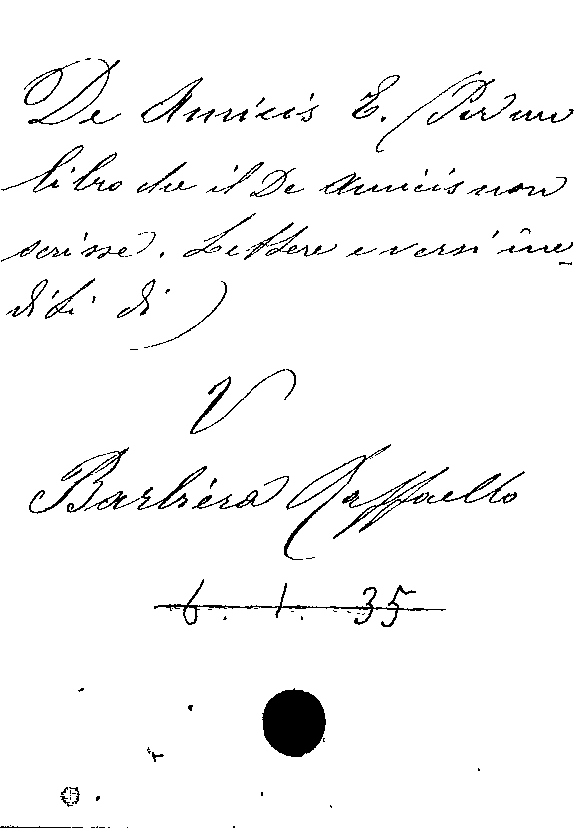 De Amicis E. (Per un
libro che il De Amicis non
scrisse. Lettere e versi ine-
diti di)
V
Barbiera Raffaello
6. 1. 35